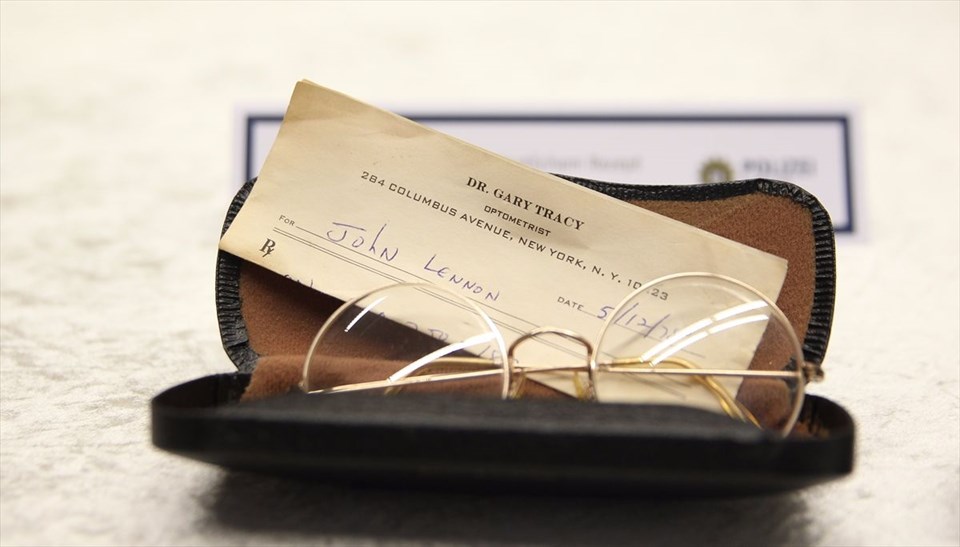 DR. GARY TRACY
OPTOMETRIST
284 COLUMBUS AVENUE, NEW YORK, N. Y.
FOR John LENNON
DATE 5/12/
℞
POLIZEI